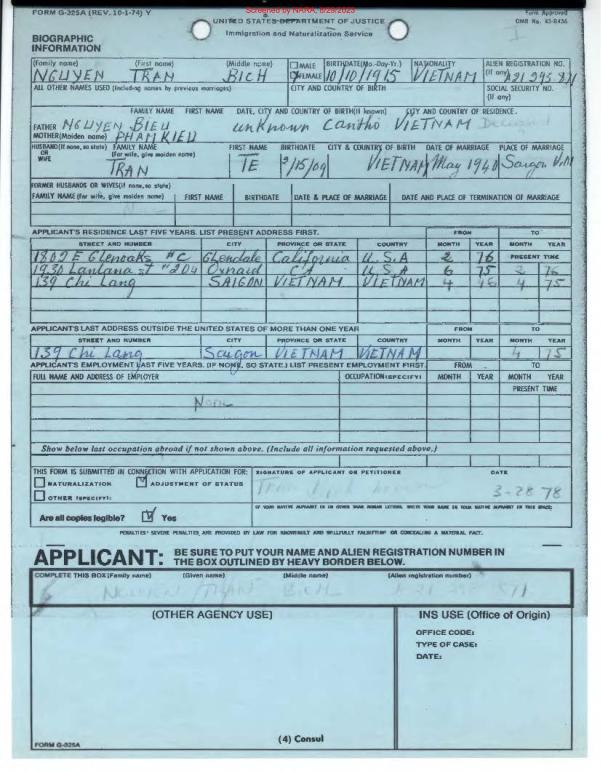 FORM G-325A (REV. 10-1-74) Y
Screened by NARA, 8/29/2023
Form Approved
OMB No. 43-R436
UNITED STATES DEPARTMENT OF JUSTICE
Immigration and Naturalization Service
BIOGRAPHIC
INFORMATION
(Family name) (First name) (Middle name) MALE BIRTHDATE(Mo.-Day-Yr.) NATIONALITY ALIEN REGISTRATION NO.
NGUYEN TRAN BICH FEMALE 10/10/1915 VIETNAM (If any) A21 295
ALL OTHER NAMES USED (Including names by previous marriages) CITY AND COUNTRY OF BIRTH SOCIAL SECURITY NO.
(If any)
FAMILY NAME FIRST NAME DATE, CITY AND COUNTRY OF BIRTH(If known) CITY AND COUNTRY OF RESIDENCE.
FATHER NGUYEN BIEU unknown Cantho VIETNAM
MOTHER(Maiden name) PHAM KIEU
HUSBAND(If none, so state) OR WIFE FAMILY NAME (For wife, give maiden name) FIRST NAME BIRTHDATE CITY & COUNTRY OF BIRTH DATE OF MARRIAGE PLACE OF MARRIAGE
TRAN TE /15/09 VIETNAM May 1940 Saigon V.N
FORMER HUSBANDS OR WIVES(If none, so state)
FAMILY NAME (For wife, give maiden name) FIRST NAME BIRTHDATE DATE & PLACE OF MARRIAGE DATE AND PLACE OF TERMINATION OF MARRIAGE
APPLICANT'S RESIDENCE LAST FIVE YEARS. LIST PRESENT ADDRESS FIRST. FROM TO
STREET AND NUMBER CITY PROVINCE OR STATE COUNTRY MONTH YEAR MONTH YEAR
1802 E Glenoaks #C Glendale California U.S.A 2 76 PRESENT TIME
1930 Lantana st #204 Oxnard CA U.S.A 6 75 2 76
139 Chi Lang SAIGON VIETNAM VIETNAM 4 4 75
APPLICANT'S LAST ADDRESS OUTSIDE THE UNITED STATES OF MORE THAN ONE YEAR FROM TO
STREET AND NUMBER CITY PROVINCE OR STATE COUNTRY MONTH YEAR MONTH YEAR
139 Chi Lang Saigon VIETNAM VIETNAM 4 75
APPLICANT'S EMPLOYMENT LAST FIVE YEARS. (IF NONE, SO STATE.) LIST PRESENT EMPLOYMENT FIRST. FROM TO
FULL NAME AND ADDRESS OF EMPLOYER OCCUPATION(SPECIFY) MONTH YEAR MONTH YEAR
PRESENT TIME
None
Show below last occupation abroad if not shown above. (Include all information requested above.)
THIS FORM IS SUBMITTED IN CONNECTION WITH APPLICATION FOR: SIGNATURE OF APPLICANT OR PETITIONER DATE
NATURALIZATION ADJUSTMENT OF STATUS
3-28 78
OTHER (SPECIFY):
IF YOUR NATIVE ALPHABET IS IN OTHER THAN ROMAN LETTERS, WRITE YOUR NAME IN YOUR NATIVE ALPHABET IN THIS SPACE:
Are all copies legible? Yes
PENALTIES: SEVERE PENALTIES ARE PROVIDED BY LAW FOR KNOWINGLY AND WILLFULLY FALSIFYING OR CONCEALING A MATERIAL FACT.
APPLICANT: BE SURE TO PUT YOUR NAME AND ALIEN REGISTRATION NUMBER IN
THE BOX OUTLINED BY HEAVY BORDER BELOW.
COMPLETE THIS BOX (Family name) (Given name) (Middle name) (Alien registration number)
NGUYEN TRAN BICH
(OTHER AGENCY USE) INS USE (Office of Origin)
OFFICE CODE:
TYPE OF CASE:
DATE:
(4) Consul
FORM G-325A